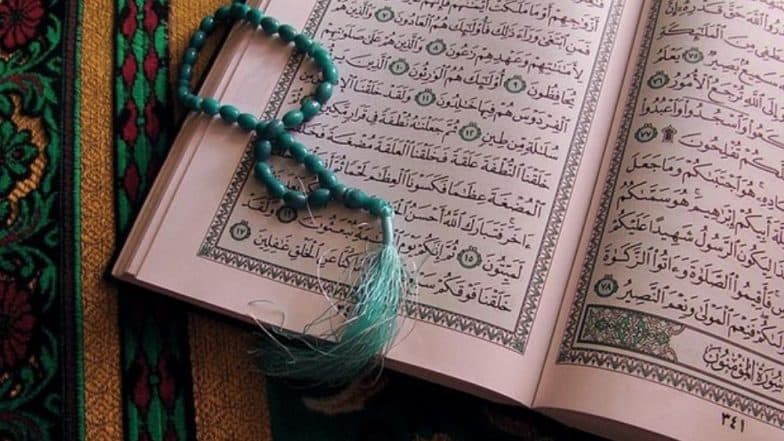 ٱللَّهَ حَقَّ
مِنَ
بَصِيرٌ ٧٥ يَعْلَمُ
ٱللَّهِ تُرْجَعُ ٱلْأُمُورُ ٧٦
وَٱسْجُدُوا۟ وَٱعْبُدُوا۟
تُفْلِحُونَ ۩ ٧٧
هُوَ ٱجْتَبَىٰكُمْ وَمَا جَعَلَ
أَبِيكُمْ إِبْرَٰهِيمَ هُوَ سَمَّىٰكُمُ
لِيَكُونَ ٱلرَّسُولُ شَهِيدًا عَلَيْكُمْ
فَأَقِيمُوا۟ ٱلصَّلَوٰةَ وَءَاتُوا۟ ٱلزَّكَوٰةَ
فَنِعْمَ ٱلْمَوْلَىٰ وَنِعْمَ ٱلنَّصِيرُ ٧٨
سُورَةُ المُؤْمِنُونَ
٣٤١
أَزْوَٰجِهِمْ أَوْ مَا مَلَكَتْ أَيْمَٰنُهُمْ فَإِنَّهُمْ غَيْرُ
فَمَنِ ٱبْتَغَىٰ وَرَآءَ ذَٰلِكَ فَأُو۟لَٰٓئِكَ هُمُ ٱلْعَادُونَ ٧ وَٱلَّذِينَ هُمْ
لِأَمَٰنَٰتِهِمْ وَعَهْدِهِمْ رَٰعُونَ ٨ وَٱلَّذِينَ هُمْ عَلَىٰ صَلَوَٰتِهِمْ
يُحَافِظُونَ ٩ أُو۟لَٰٓئِكَ هُمُ ٱلْوَٰرِثُونَ ١٠ ٱلَّذِينَ
ٱلْفِرْدَوْسَ هُمْ فِيهَا خَٰلِدُونَ ١١ وَلَقَدْ خَلَقْنَا
سُلَٰلَةٍ مِّن طِينٍ ١٢ ثُمَّ جَعَلْنَٰهُ نُطْفَةً فِى قَرَارٍ مَّكِينٍ
خَلَقْنَا ٱلنُّطْفَةَ عَلَقَةً فَخَلَقْنَا ٱلْعَلَقَةَ مُضْغَةً فَخَلَقْنَا
ٱلْمُضْغَةَ عِظَٰمًا فَكَسَوْنَا ٱلْعِظَٰمَ لَحْمًا ثُمَّ
ءَاخَرَ فَتَبَارَكَ ٱللَّهُ أَحْسَنُ
لَمَيِّتُونَ ١٥ ثُمَّ إِنَّكُمْ يَوْمَ تُبْعَثُونَ ١٦ وَلَقَدْ
خَلَقْنَا فَوْقَكُمْ سَبْعَ وَمَا كُنَّا عَنِ ٱلْخَلْقِ غَٰفِلِينَ ١٧